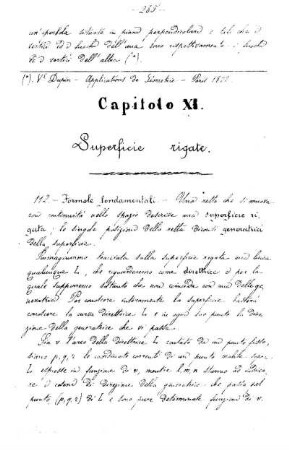 - 265 -
un'iperbole situate in piani perpendicolari e tali che i
vertici ed i fuochi dell'una sono rispettivamente i fuochi
ed i vertici dell'altra (*).
(*). V.i Dupin - Applications de Géométrie - Paris 1822
Capitolo XI.
Superficie rigate.
112 - Formole fondamentali - Una retta che si muove
con continuità nello spazio descrive una superficie ri
gata; le singole posizioni della retta diconsi generatrici
della superficie.
Immaginiamo tracciata sulla superficie rigata una linea
qualunque L, che riguarderemo come direttrice e per la
quale supporremo soltanto che non coincida con una delle ge
neratrici. Per conoscere interamente la superficie, basterà
conoscere la curva direttrice L e in ogni suo punto la dire
zione della generatrice che vi passa.
Sia v l'arco della direttrice L contato da un punto fisso,
siano p, q, r le coordinate correnti di un punto mobile
espresse in funzione di v, mentre l, m, n stanno ad indica
re i coseni di direzione della generatrice che passa pel
punto (p, q, r) di L e sono pure determinate funzioni di v.